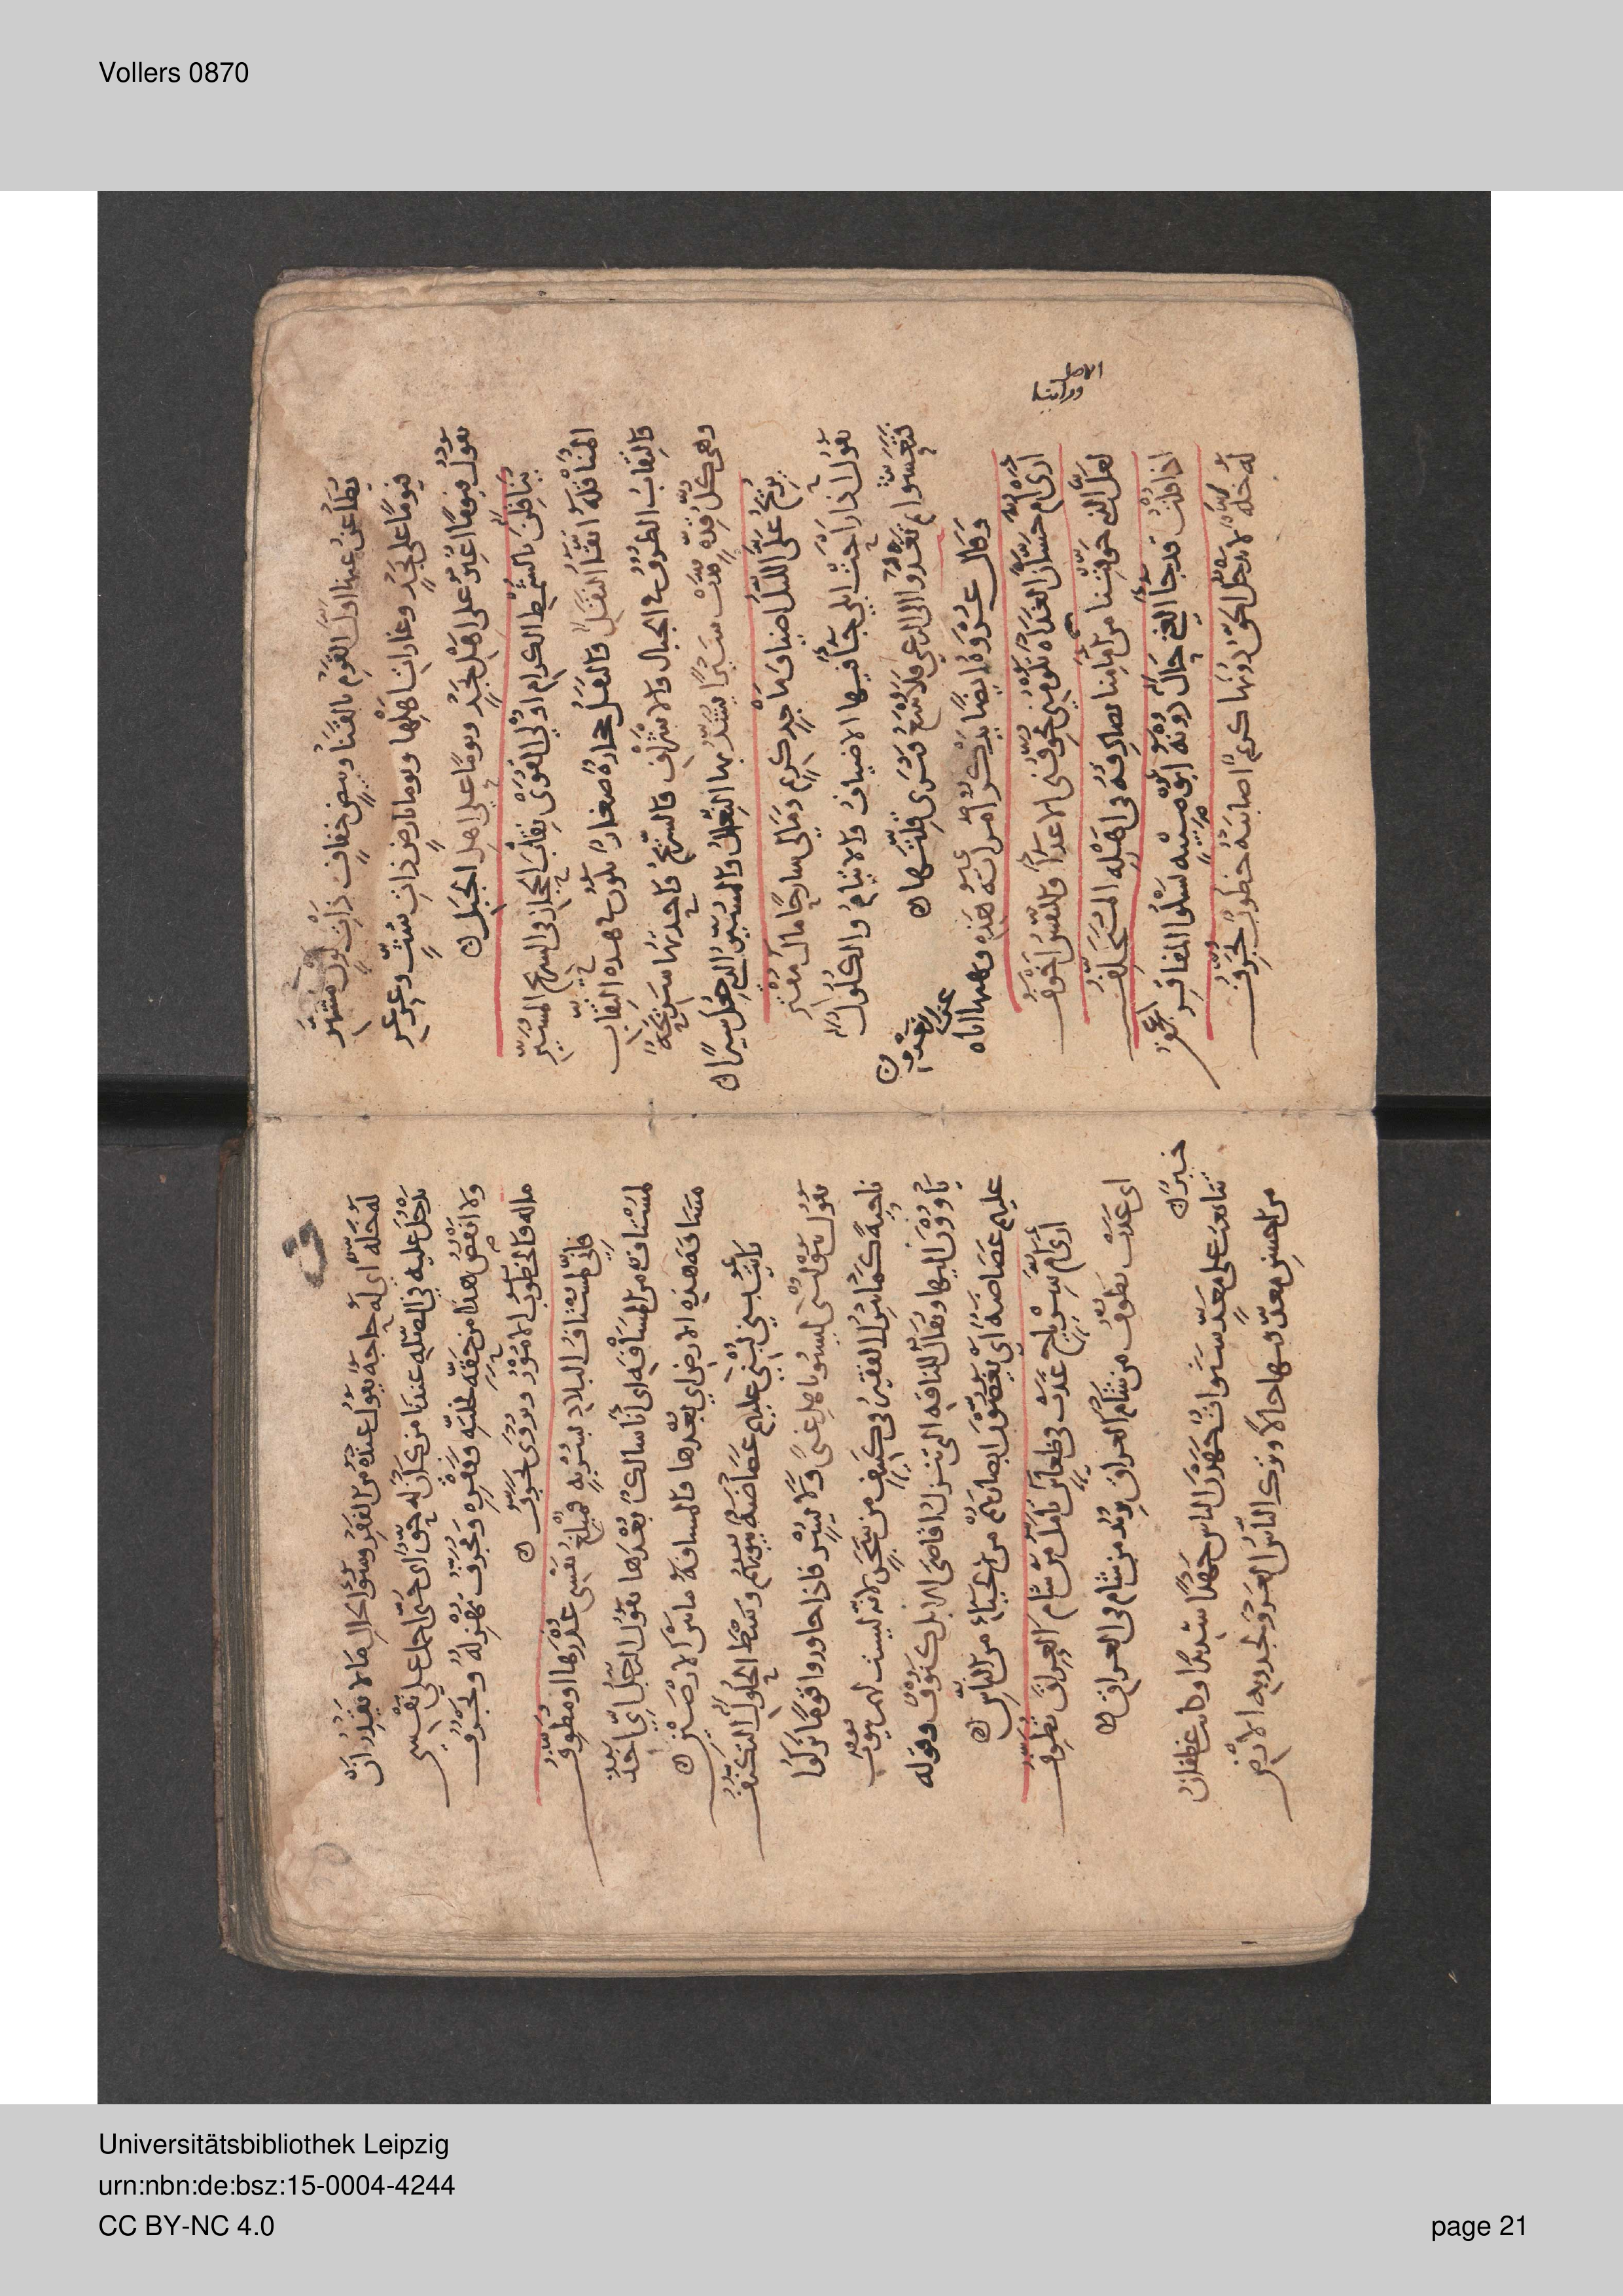 Vollers 0870
يطاعن عنها اول القوم بالقنا وبيض خفاف ذات لون مشهر
فيوما على نجد وغارات اهلها ويوما بارض ذات شث وعرعر
يقول فيوما اغير على اهل نجد ويوما على اهل الجبل
يناقلن بالشمط الكرام اولى القوى نقاب الحجاز في السريح المسير
المناقلة اتقاء النقل والنقل حجارة صغار تكون في هذه النقاب
والنقاب الطرق في الجبال والاشراف والسريح واحدتها سريحة
وهي كل قدة قدت سيرا يشد بها النعال والمسير الذي جعل سيرا
يريح علي الليل اضياف ماجد كريم ومالي سارحا مال مقتر
يقول اذا راحت ابلي جا فيها الاضياف والايتام والكلول
فتعشوا ثم تغدوا الى الرعي فلا فترى قلتها
وقال عروة ايضا يذكر امراته هذه ونهيها اياه
ارى ام حسان الغداة تلومني تخوفني الاعداء والنفس اخوف
لعل الذي خوفتنا من امامنا يصادفه في اهله المتخلف
اذا قلت قد جا الغنى حال دونه ابو صبية يشكوا المفاقر اعجف
له خلة لا يدخل الحق دونها كريم اصابته خطوب تجرف
له خلة اي له حاجة يقول عنده من الفقر وسوء الحال ما لا يقدر ان
يدخل عليه في الصلة عندنا من كان له حق اى حتى احمل على نفسي
ولا انقص هذا من حقه لخلته وفقره وتجرف تهزله وتجرف
ماله والخطوب الامور ويروى تجرف
فاني لمستاف البلاد بسربة فمبلغ نفسي عذرها او مطوف
لمستاف من المسافة اى انا سالك بعدها يقول الرجل
مسافة هذه الارض اي بعدها والمسافة ما بين الارضين
رايت بني لبنى عليهم غضاضة بيوتهم وسط الحلول التكنف
يقول بنو لبنى ليسوا باهل غنى ولا يسر فاذا جاوروا قوما تركوا
ناحية كما ينزل الفقير في كنيف من شجر لانه ليست لهم بيوت
ياوون اليها ويقال للناقة التي تنزل اقاصي الابل كنوف وقوله
عليهم غضاضة اي يغضون ابصارهم من الحياء من الناس
ارى ام سرياح غدت في ظعائن تامل من شام العراق تطوف
اى غدت تطوف من شام العراق يريد من شام في العراق
تتابعت على معد سنوات جهدن الناس جهدا شديدا وكانت غطفان
من احسن معد فيها حالا وترك الناس الغزو لجدوبة الارض
Universitätsbibliothek Leipzig
urn:nbn:de:bsz:15-0004-4244
CC BY-NC 4.0
page 21